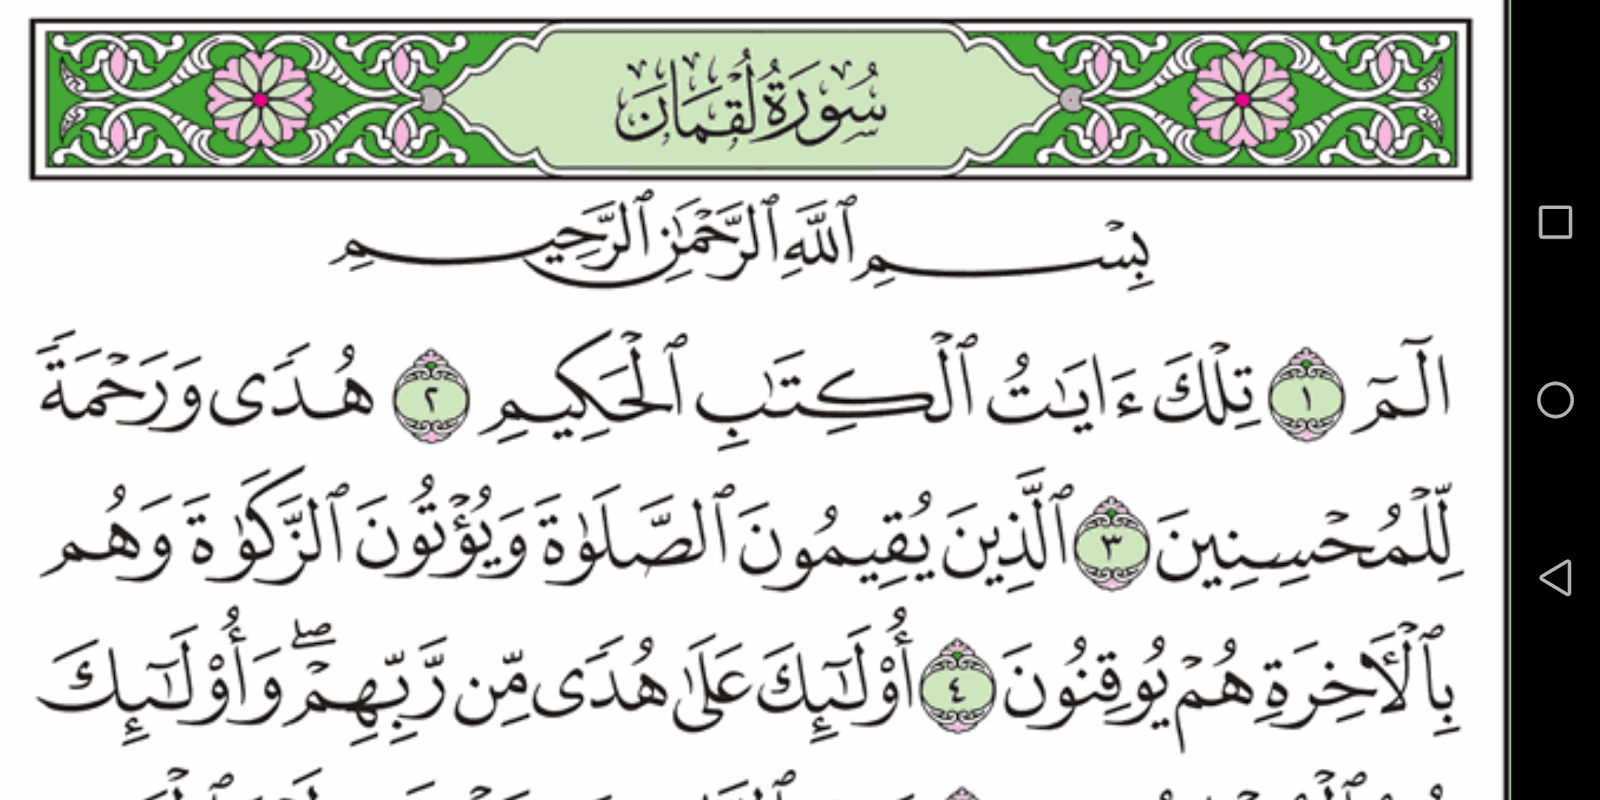 سُورَةُ لُقْمَانَ
بِسْمِ ٱللَّهِ ٱلرَّحْمَٰنِ ٱلرَّحِيمِ
الٓمٓ ١ تِلْكَ ءَايَٰتُ ٱلْكِتَٰبِ ٱلْحَكِيمِ ٢ هُدًى وَرَحْمَةً
لِّلْمُحْسِنِينَ ٣ ٱلَّذِينَ يُقِيمُونَ ٱلصَّلَوٰةَ وَيُؤْتُونَ ٱلزَّكَوٰةَ وَهُم
بِٱلْأَخِرَةِ هُمْ يُوقِنُونَ ٤ أُوْلَٰٓئِكَ عَلَىٰ هُدًى مِّن رَّبِّهِمْۖ وَأُوْلَٰٓئِكَ